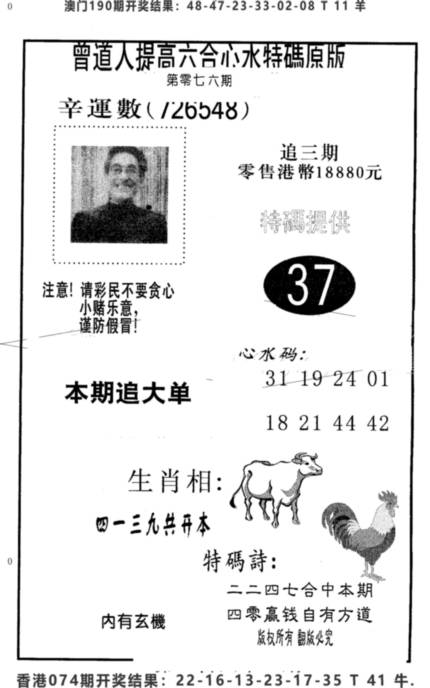 澳门190期开奖结果：48-47-23-33-02-08 T 11 羊
曾道人提高六合心水特碼原版
第零七六期
辛運數(726548)
追三期
零售港幣18880元
特碼提供
37
注意！请彩民不要贪心
小赌乐意，
谨防假冒！
心水码：
31 19 24 01
本期追大单
18 21 44 42
生肖相：
四一三九共开本
特碼詩：
二二四七合中本期
四零赢钱自有方道
内有玄機
版权所有 翻版必究
香港074期开奖结果：22-16-13-23-17-35 T 41 牛.